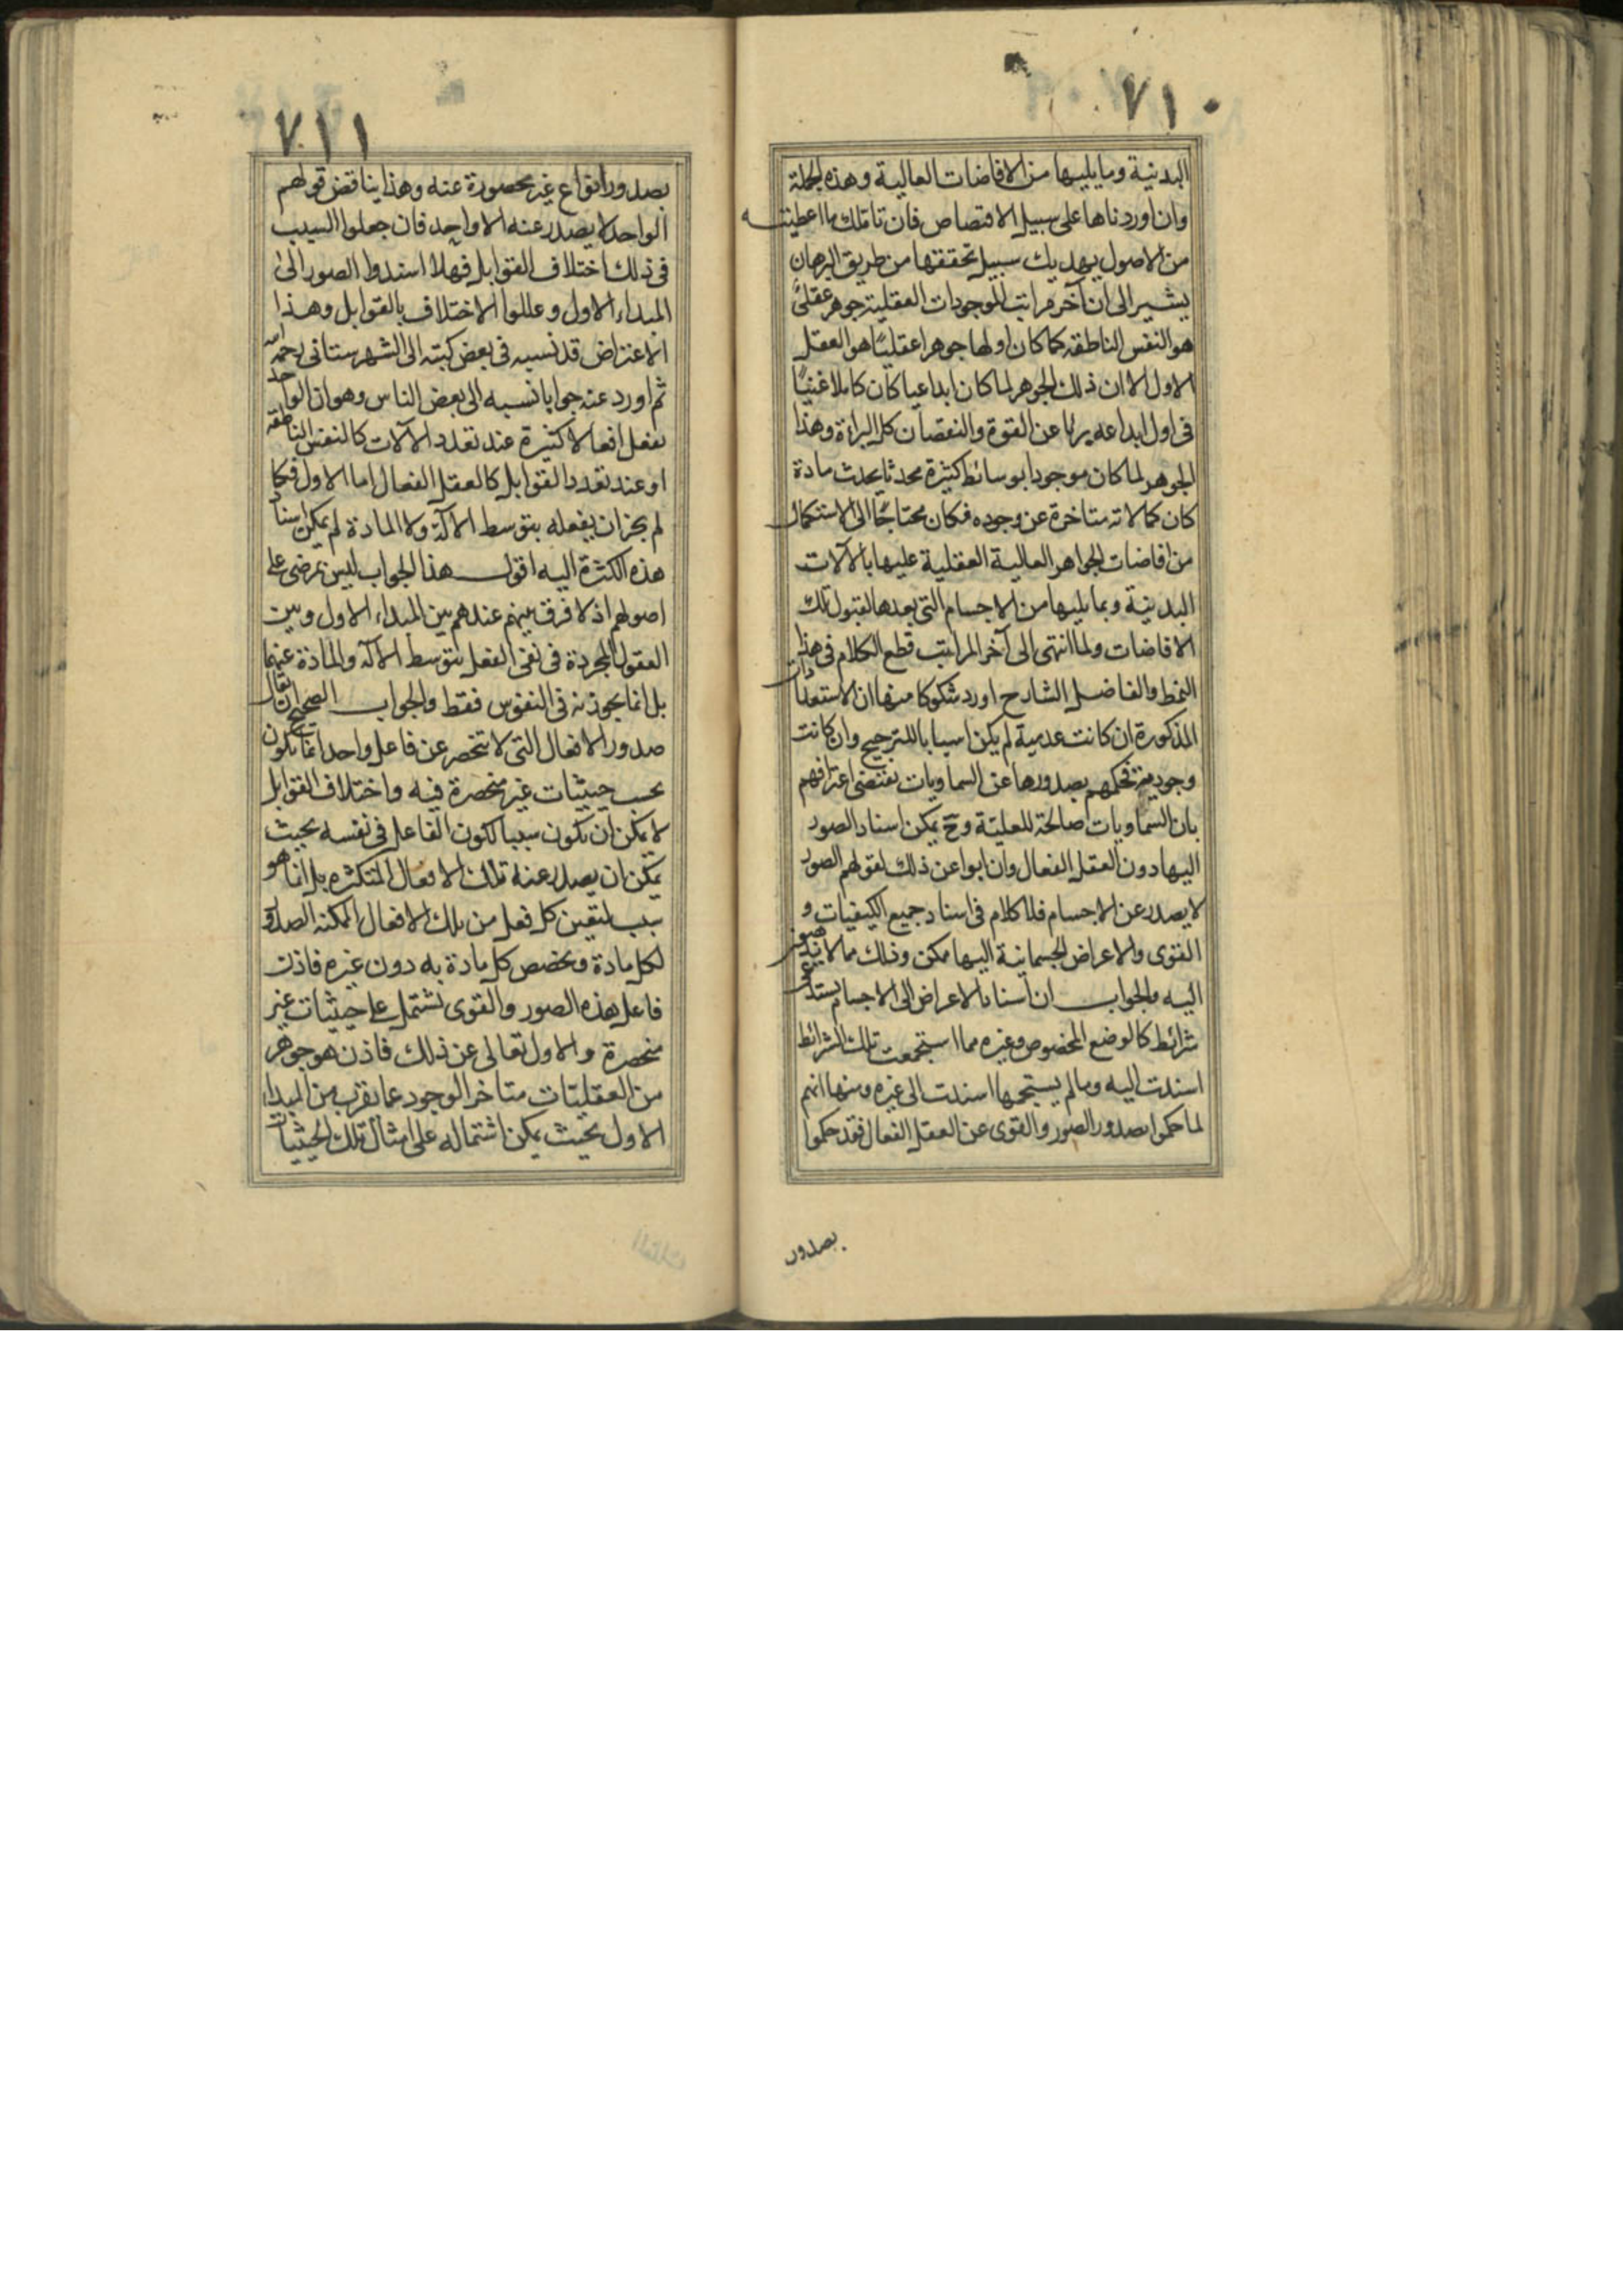 ٧١٠
البدنية وما يليها من الافاضات العالية وهذه الجملة
وان اوردناها على سبيل الاقتصاص فان تاملك ما اعطيته
من الاصول يهديك سبيل تحققها من طريق البرهان
يشير الى ان آخر مراتب الموجودات العقلية جوهر عقلى
هو النفس الناطقة كما كان اولها جوهرا عقليا هو العقل
الاول الا ان ذلك الجوهر لما كان ابداعيا كان كاملا غنيا
فى اول ابداعه بريا عن القوة والنقصان كل البراءة وهذا
الجوهر لما كان موجودا بوسائط كثيرة محدثا بحدث مادة
كان كمالاته متاخرة عن وجوده فكان محتاجا الى الاستكمال
من افاضات الجواهر العالية العقلية عليها بالآلات
البدنية وبما يليها من الاجسام التى بعدها لقبول تلك
الافاضات ولما انتهى الى آخر المراتب قطع الكلام فى هذا
النمط والفاضل الشارح اورد شكوكا منها ان الاستعدادات
المذكورة ان كانت عدمية لم يكن اسبابا للترجيح وان كانت
وجودية فحكمهم بصدورها عن السماويات يقتضى اعترافهم
بان السماويات صالحة للعلية وح يمكن اسناد الصور
اليها دون العقل الفعال وان ابوا عن ذلك لقولهم الصور
لا يصدر عن الاجسام فلا كلام فى اسناد جميع الكيفيات و
القوى والاعراض الجسمانية اليها ممكن وذلك مما لا يذهبون
اليه والجواب ان اسناد الاعراض الى الاجسام يستدعى
شرائط كالوضع المخصوص وغيره مما استجمعت تلك الشرائط
اسندت اليه وما لم يستجمعها اسندت الى غيره ومنها انهم
لما حكموا بصدور الصور والقوى عن العقل الفعال فقد حكموا
بصدور
٧١١
بصدور انواع غير محصورة عنه وهذا يناقض قولهم
الواحد لا يصدر عنه الا واحد فان جعلوا السبب
فى ذلك اختلاف القوابل فهلا اسندوا الصور الى
المبداء الاول وعللوا الاختلاف بالقوابل وهذا
الاعتراض قد نسبه فى بعض كتبه الى الشهرستانى رحمه
ثم اورد عنه جوابا نسبه الى بعض الناس وهو ان الواحد
يفعل افعالا كثيرة عند تعدد الآلات كالنفس الناطقة
او عند تعدد القوابل كالعقل الفعال اما الاول فكما
لم يجز ان يفعله بتوسط الآلة ولا المادة لم يمكن اسناد
هذه الكثرة اليه اقول هذا الجواب ليس بمرضى على
اصولهم اذ لا فرق بينهم عندهم بين المبداء الاول وبين
العقول المجردة فى نفى الفعل بتوسط الآلة والمادة عنهما
بل انما يجوزنه فى النفوس فقط والجواب الصحيح ان يقال
صدور الافعال التى لا تنحصر عن فاعل واحد انما يكون
بحسب حيثيات غير منحصرة فيه واختلاف القوابل
لا يمكن ان يكون سببا لكون الفاعل فى نفسه بحيث
يمكن ان يصدر عنه تلك الافعال المتكثره بل انما هو
سبب لتعين كل فعل من تلك الافعال الممكنه الصدور
لكل مادة وتخصص كل مادة به دون غيره فاذن
فاعل هذه الصور والقوى يشتمل على حيثيات غير
منحصرة والاول تعالى عن ذلك فاذن هو جوهر
من العقليات متاخر الوجود عما يقرب من المبداء
الاول بحيث يمكن اشتماله على امثال تلك الحيثيات